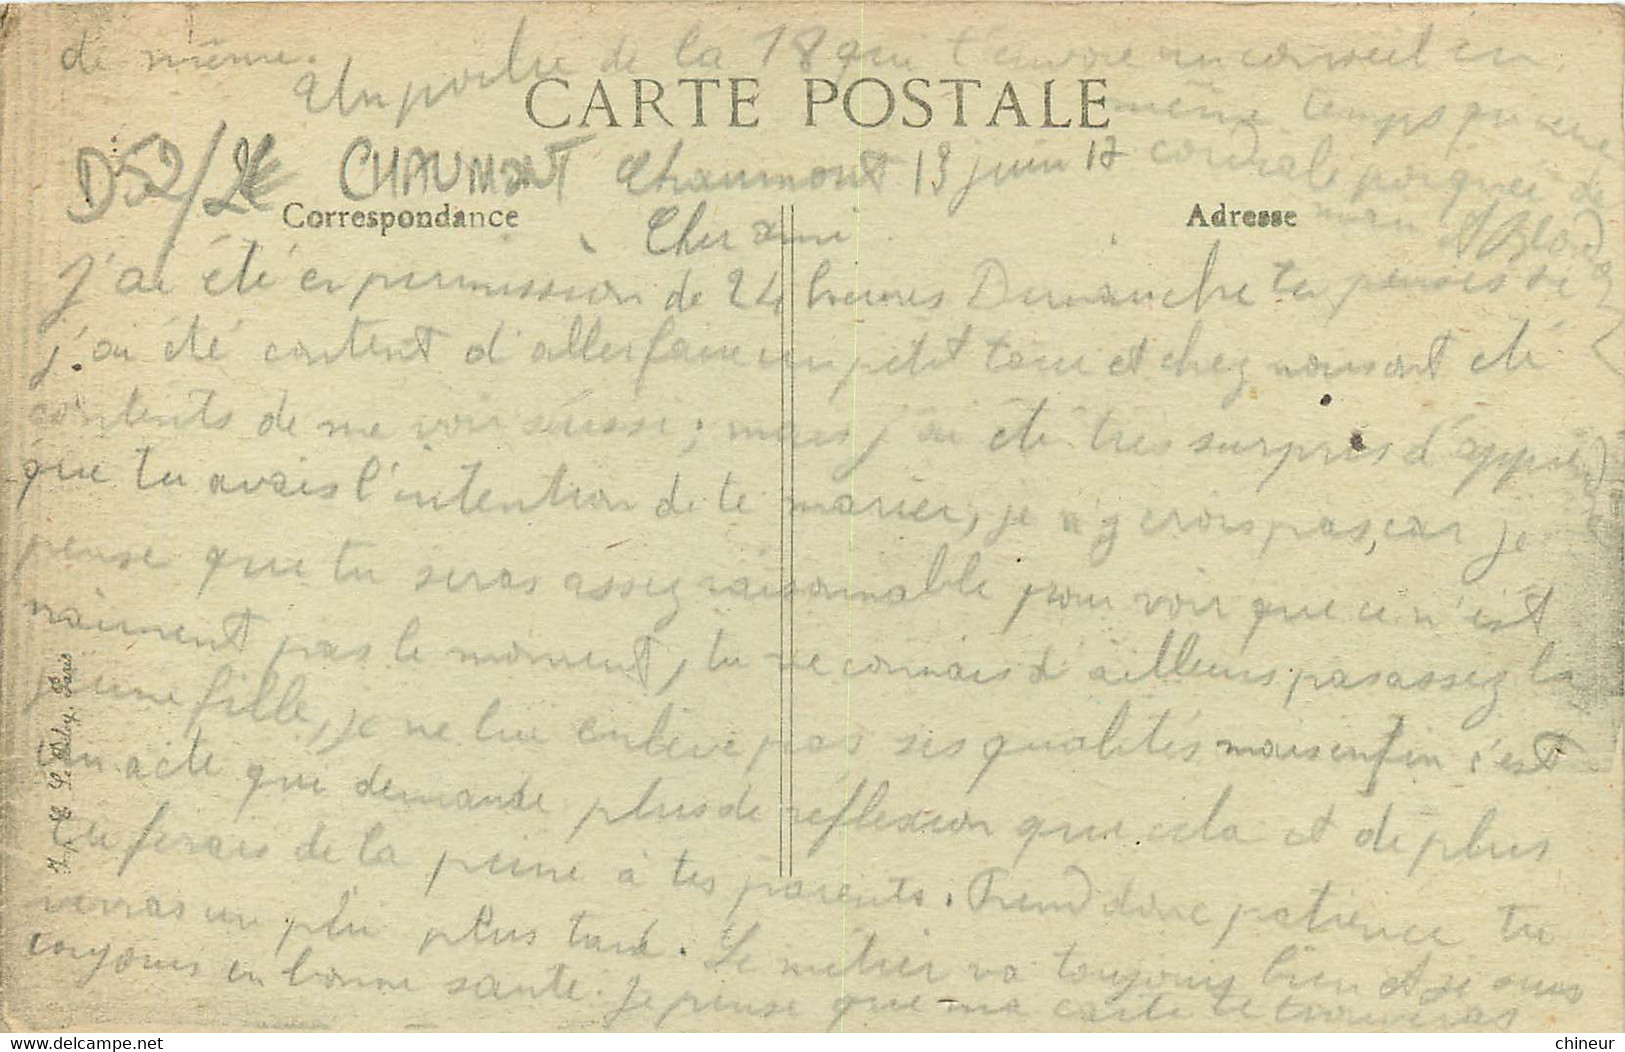 de même.
Un poilu de la 18 qui t'envoie un conseil en
CARTE POSTALE
même temps qu'une
D52/2 CHAUMONT Chaumont 13 juin 17 cordiale poignée de
Correspondance
Adresse
main
Cher ami
J'ai été en permission de 24 heures Dimanche tu penses si
j'ai été content d'aller faire un petit tour et chez nous ont été
contents de me voir aussi; mais j'ai été très surpris d'apprendre
que tu avais l'intention de te marier, je n'y crois pas, car je
pense que tu seras assez raisonnable pour voir que ce n'est
vraiment pas le moment, tu ne connais d'ailleurs pas assez la
jeune fille, je ne lui enlève pas ses qualités mais enfin c'est
un acte qui demande plus de réflexion que cela et de plus
tu ferais de la peine à tes parents. Prend donc patience tu
verras un plus tard. Le métier va toujours bien et je suis
toujours en bonne santé. Je pense que ma carte te trouveras
Imp. E. Le Deley, Paris
chineur
delcampe.net